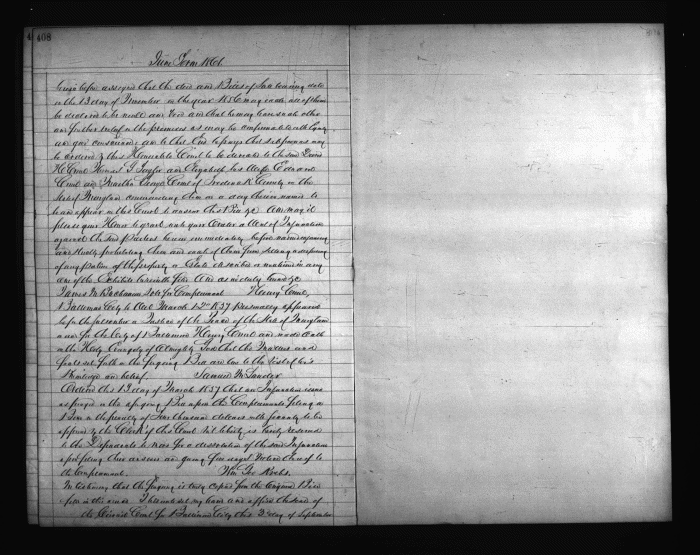 408
June Term 1861
herein before assigned that the deed and Bill of Sale bearing date
on the 13 day of November in the year 1856 may each all of them
be declared to be null and void and that he may have such other
and further relief in the premises as may be conformable with Equity
and good conscience and to that End he prays that subpoenas may
be ordered by this Honorable Court to be directed to the said
Taylor and Elizabeth his Wife Edward
of Frederick County in the
State of Maryland commanding them on a day therein named to
be and appear in this Court to answer this Bill &c And may it
please your Honor to grant and your Orator a Writ of Injunction
against the said parties herein immediately before named enjoining
and strictly prohibiting them and each of them from selling or disposing
of any portion of the property or Estate described or mentioned in any
one of the Exhibits herewith filed And as in duty bound &c
James M Buchanan Sol for Complainant Henry
Baltimore City to wit March 1837 Personally appeared
before the subscriber a Justice of the Peace of the State of Maryland
in and for the City of Baltimore Henry and made Oath
on the Holy Evangely of Almighty God that the Matters and
facts set forth in the foregoing Bill are true to the best of his
Knowledge and belief. Samuel M
Ordered this 13 day of March 1857 that an Injunction issue
as prayed in the foregoing Bill upon the Complainants filing a
Bond in the penalty of thousand dollars with security to be
approved by the Clerk of this Court but liberty is hereby reserved
to the Defendants to move for a dissolution of the said Injunction
upon filing their answer and giving five days notice thereof to
the Complainant. Wm Geo Krebs.
In testimony that the foregoing is truly copied from the Original Bill
filed in this cause I hereunto set my hand and affix the Seal of
the Circuit Court for Baltimore City this 3d day of September